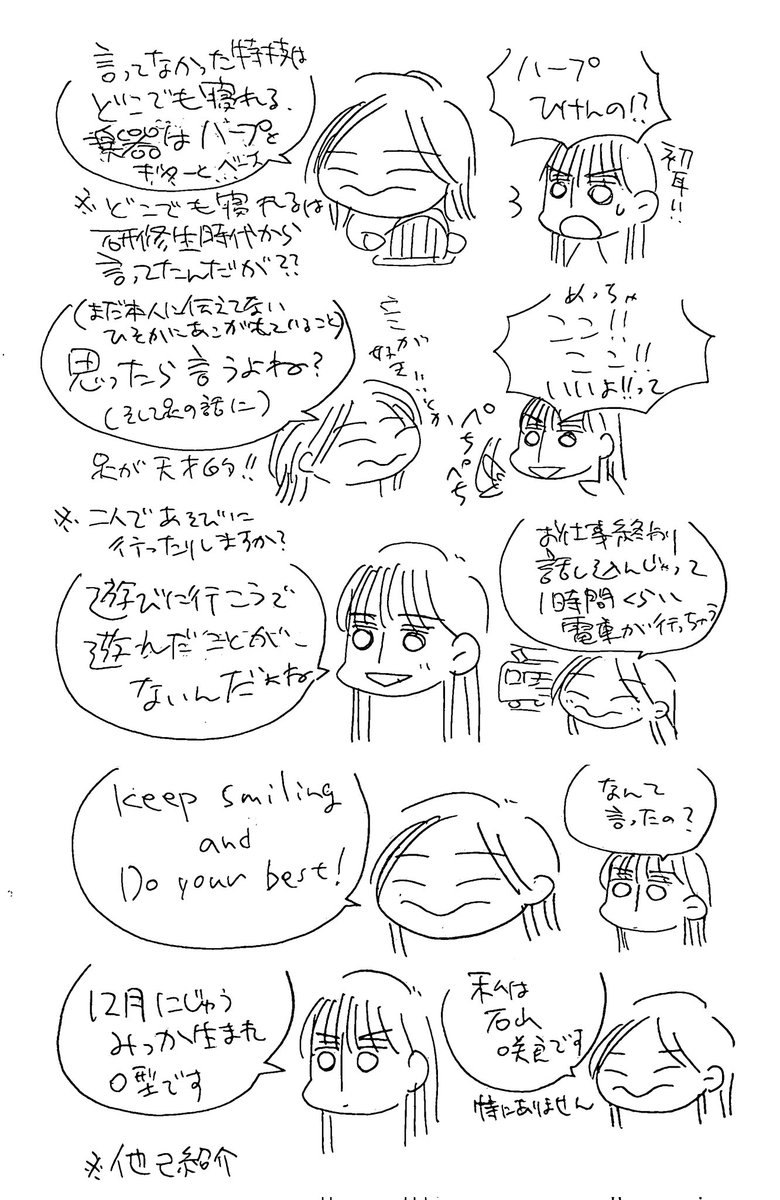 言ってなかった特技は
どこでも寝れる、
楽器はハープと
ギターと、ベース
ハープ
ひけんの!?
初耳!!
※どこでも寝れるは
研修生時代から
言ってたんだが??
(まだ本人に伝えてない
ひそかにあこがれていること)
思ったら言うよね?
(そして足の話に)
足が天才的!!
ここが
好き!!とか
めっちゃ
ここ!!
ここ!!
いいよ!!って
ぺち
ぺち
※二人であそびに
行ったりしますか?
遊びに行こうで
遊んだことが、
ないんだよね
お仕事終わり
話し込んじゃって
1時間くらい
電車が行っちゃう
keep smiling
and
Do your best!
なんて
言ったの?
12月にじゅう
みっか生まれ
O型です
私は
石山
咲良です
特にありません
※他己紹介